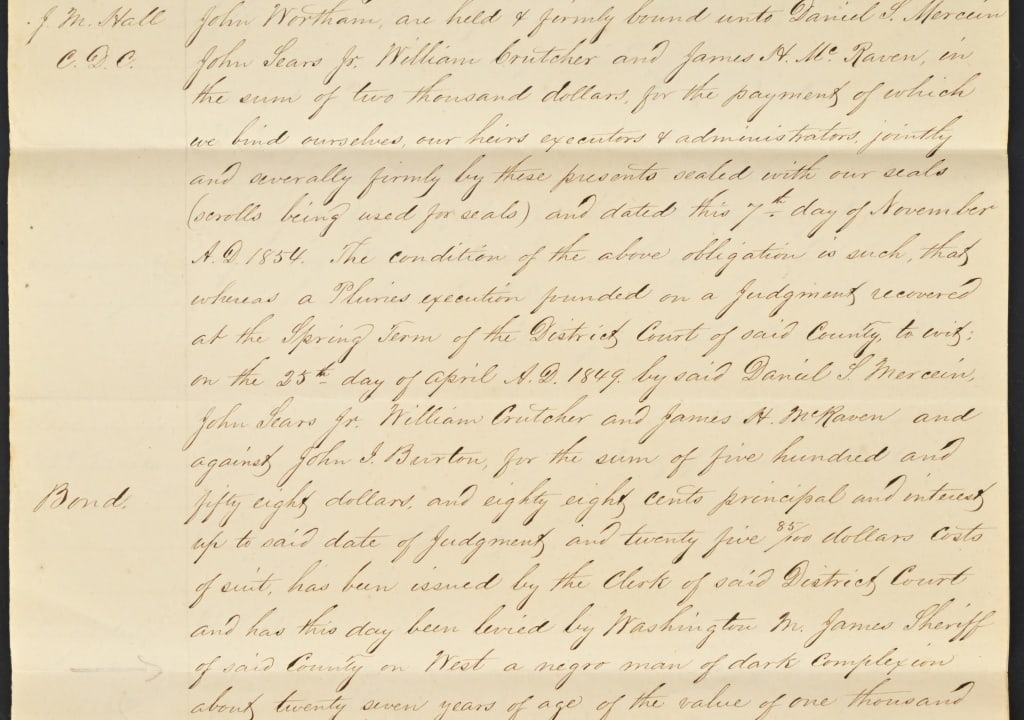 J. M. Hall
C. D. C.
John Wortham, are held & firmly bound unto Daniel S. Mercein
John Sears Jr. William Crutcher and James H. Mc Raven, in
the sum of two thousand dollars, for the payment of which
we bind ourselves, our heirs executors & administrators, jointly
and severally firmly by these presents sealed with our seals
(scrolls being used for seals) and dated this 7th day of November
A.D. 1854. The condition of the above obligation is such, that
whereas a Pluries execution founded on a Judgment recovered
at the Spring Term of the District Court of said County, to wit:
on the 25th day of April A.D. 1849. by said Daniel S. Mercein,
John Sears Jr. William Crutcher and James H. McRaven and
against John I. Burton, for the sum of five hundred and
Bond.
fifty eight dollars, and eighty eight cents principal and interest
up to said date of Judgment and twenty five 85/100 dollars costs
of suit, has been issued by the Clerk of said District Court
and has this day been levied by Washington M. James Sheriff
of said County on West a negro man of dark complexion
about twenty seven years of age of the value of one thousand